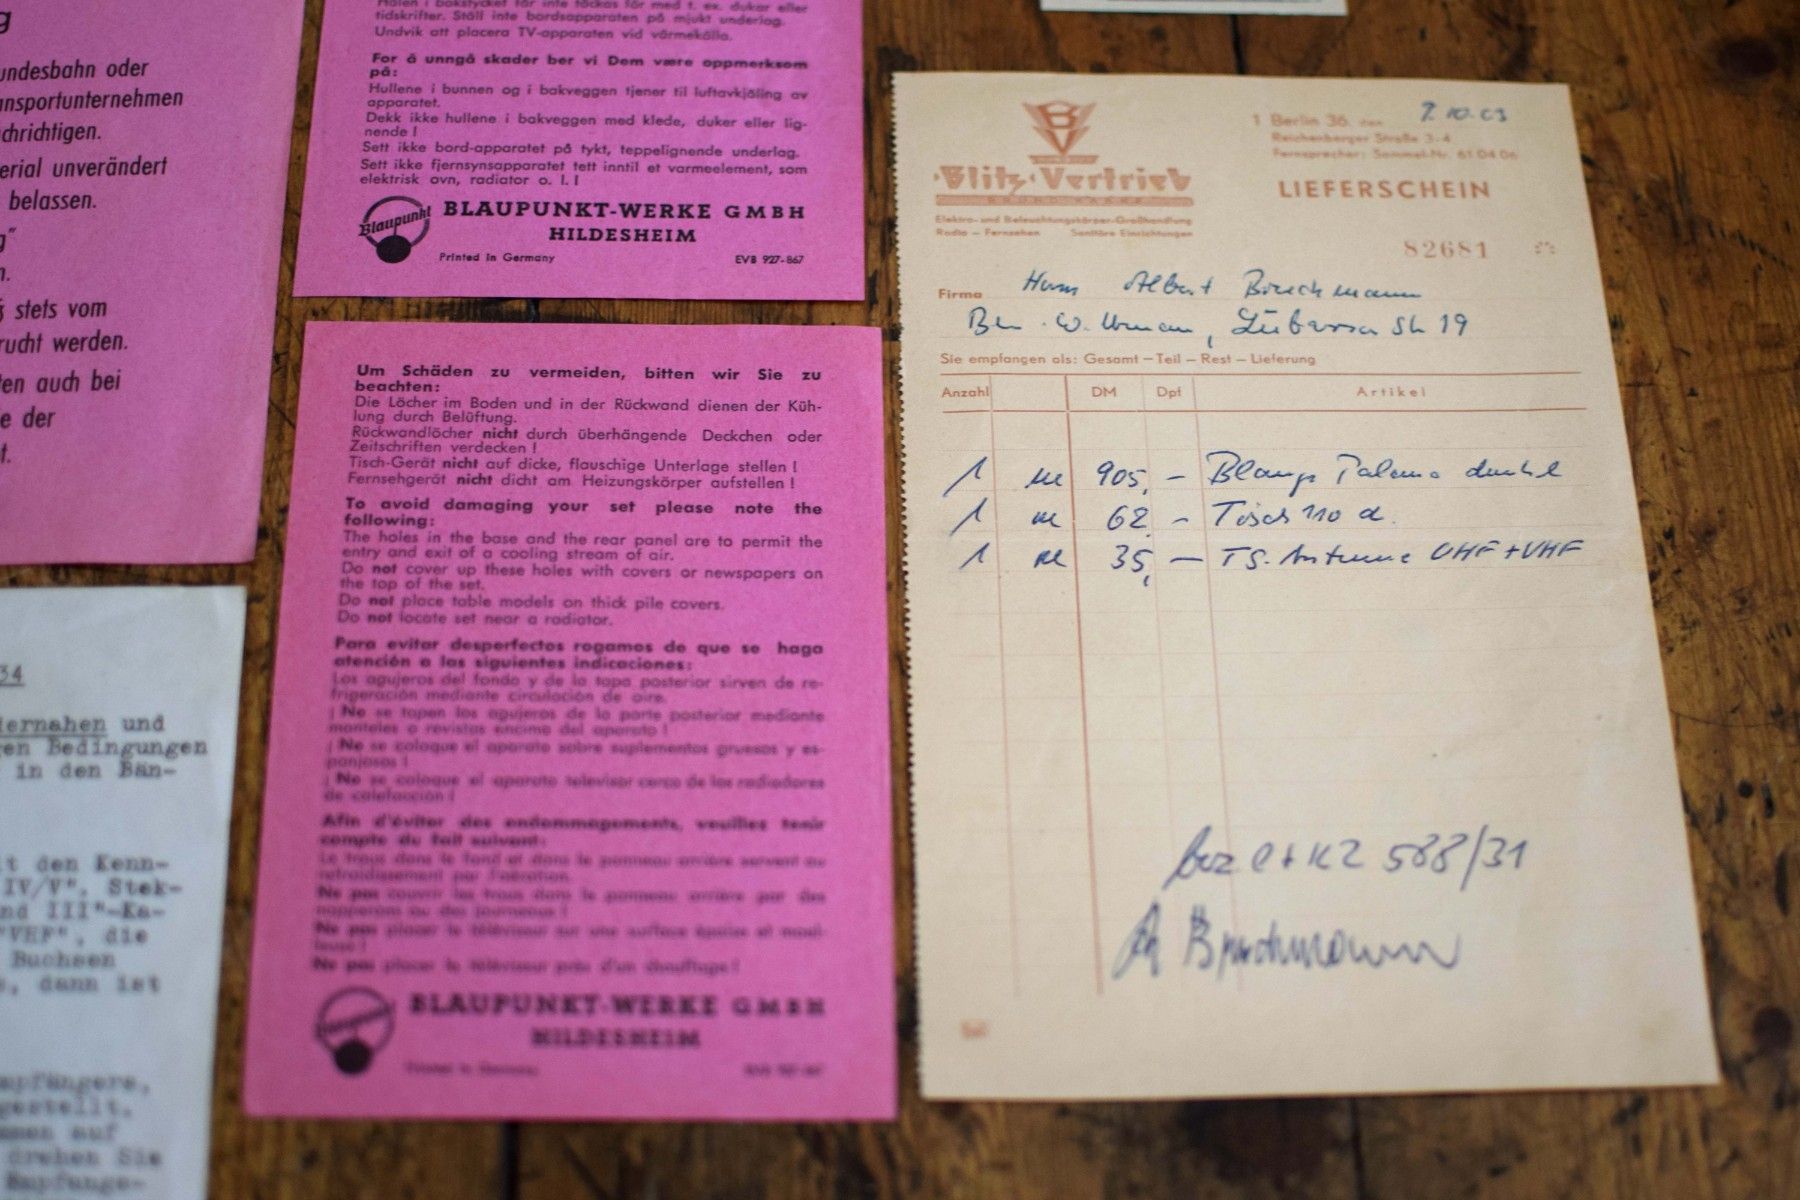 undesbahn oder
nsportunternehmen
chrichtigen.
erial unverändert
belassen.
g"
n.
stets vom
rucht werden.
ten auch bei
e der
t.
34
iernahen und
gen Bedingungen
r in den Bän-
it den Kenn-
IV/V", Stek-
nd III"-Ka-
"VHF", die
Buchsen
, dann ist
mpfängers,
gestellt.
men auf
drehen Sie
Empfangs-
Hålen i bakstycket får inte täckas för med t. ex. dukar eller
tidskrifter. Ställ inte bordsapparaten på mjukt underlag.
Undvik att placera TV-apparaten vid värmekälla.
For å unngå skader ber vi Dem være oppmerksom
på:
Hullene i bunnen og i bakveggen tjener til luftavkjöling av
apparatet.
Dekk ikke hullene i bakveggen med klede, duker eller lig-
nende !
Sett ikke bord-apparatet på tykt, teppelignende underlag.
Sett ikke fjernsynsapparatet tett inntil et varmeelement, som
elektrisk ovn, radiator o. l. !
Blaupunkt
BLAUPUNKT-WERKE GMBH
HILDESHEIM
Printed in Germany EVB 927-867
Um Schäden zu vermeiden, bitten wir Sie zu
beachten:
Die Löcher im Boden und in der Rückwand dienen der Küh-
lung durch Belüftung.
Rückwandlöcher nicht durch überhängende Deckchen oder
Zeitschriften verdecken !
Tisch-Gerät nicht auf dicke, flauschige Unterlage stellen !
Fernsehgerät nicht dicht am Heizungskörper aufstellen !
To avoid damaging your set please note the
following:
The holes in the base and the rear panel are to permit the
entry and exit of a cooling stream of air.
Do not cover up these holes with covers or newspapers on
the top of the set.
Do not place table models on thick pile covers.
Do not locate set near a radiator.
Para evitar desperfectos rogamos de que se haga
atención a las siguientes indicaciones:
Los agujeros del fondo y de la tapa posterior sirven de re-
frigeración mediante circulación de aire.
¡ No se tapen los agujeros de la parte posterior mediante
manteles o revistas encima del aparato !
¡ No se coloque el aparato sobre suplementos gruesos y es-
ponjosos !
¡ No se coloque el aparato televisor cerca de los radiadores
de calefacción !
Afin d'éviter des endommagements, veuillez tenir
compte du fait suivant:
Le trous dans le fond et dans le panneau arrière servent au
refroidissement par l'aération.
Ne pas couvrir les trous dans le panneau arrière par des
napperons ou des journeaux !
Ne pas placer le téléviseur sur une surface épaisse et moel-
leuse !
Ne pas placer le téléviseur près d'un chauffage !
Blaupunkt
BLAUPUNKT-WERKE GMBH
HILDESHEIM
Printed in Germany EVB 927-867
B V
Blitz-Vertrieb
Elektro- und Beleuchtungskörper-Großhandlung
Radio – Fernsehen Sanitäre Einrichtungen
1 Berlin 36, den
Reichenberger Straße 3-4
Fernsprecher: Sammel-Nr. 61 04 06
LIEFERSCHEIN
82681
Firma Herrn Albert
19
Sie empfangen als: Gesamt – Teil – Rest – Lieferung
Anzahl DM Dpf Artikel
1 905,– Blaup Palermo dunkel
1 62 – Tisch 110 d.
1 35,– Antenne UHF + VHF
588/31